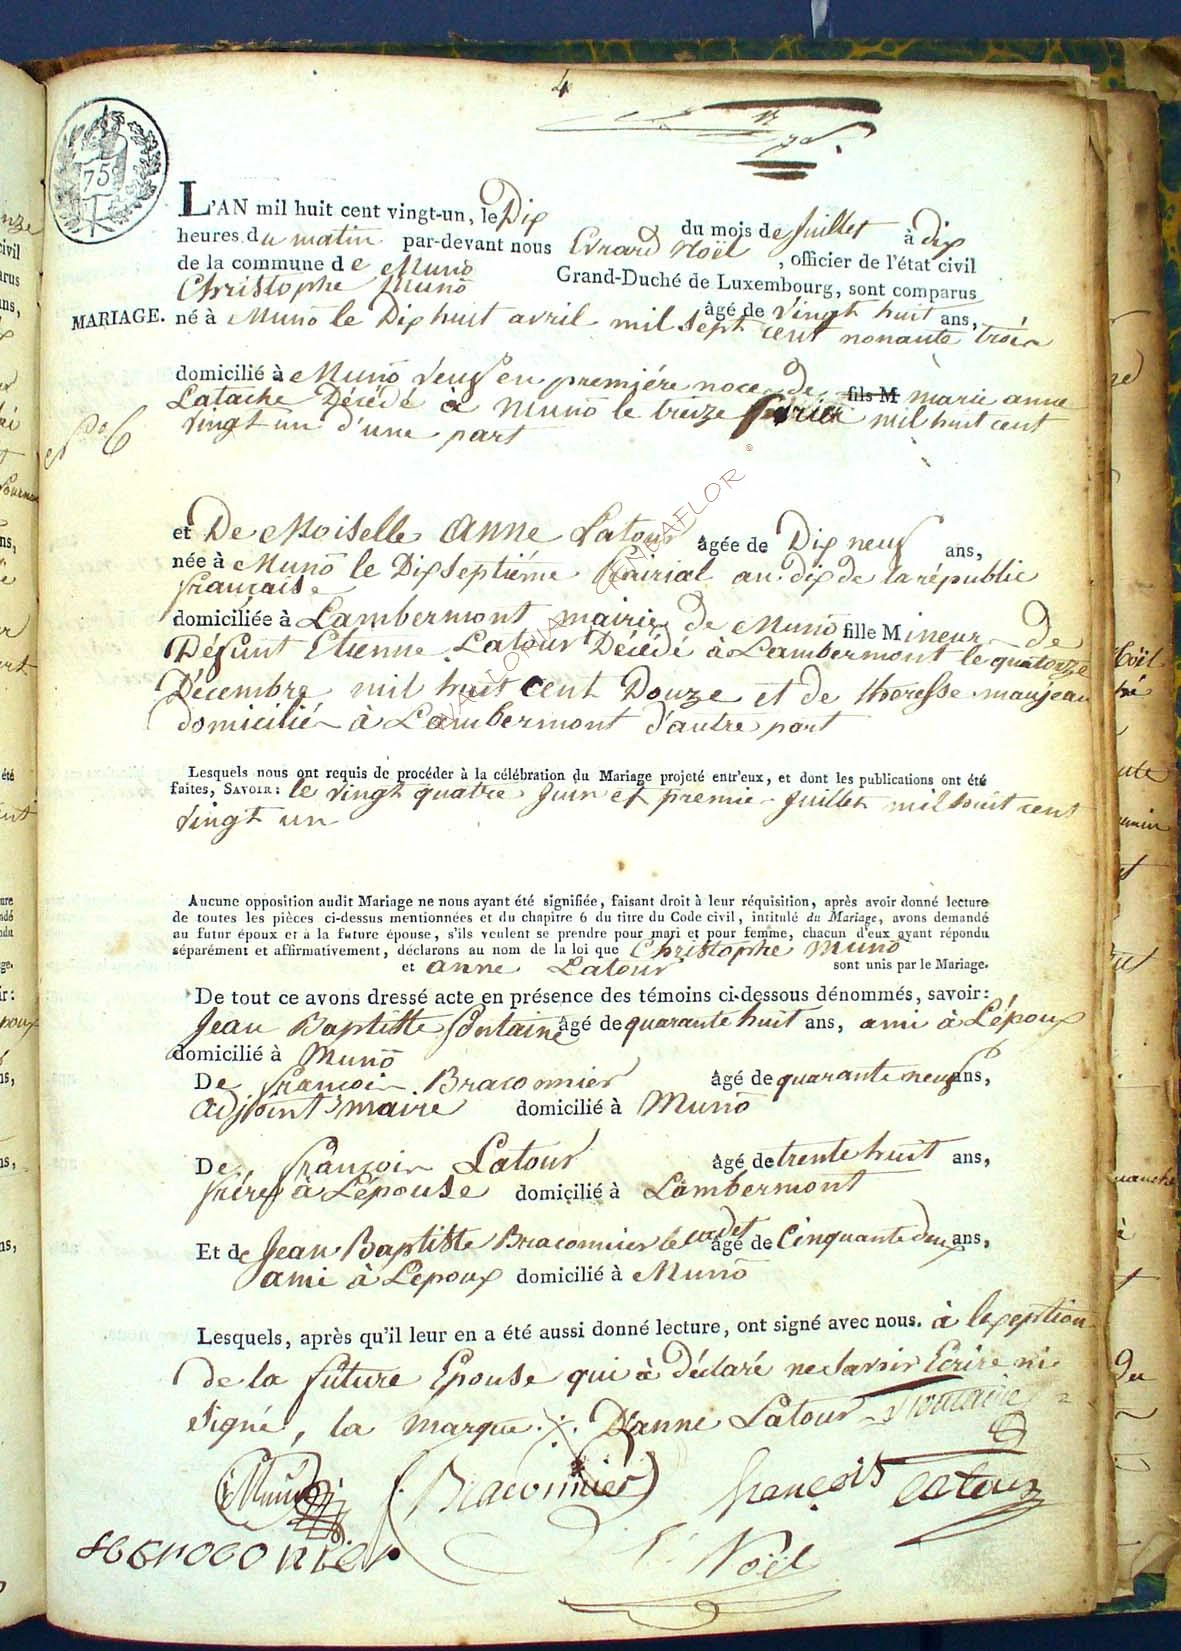 4
75
L'AN mil huit cent vingt-un, le Dix du mois de Juillet à dix
heures du matin par-devant nous Evrard Noël, officier de l'état civil
de la commune de Munô Grand-Duché de Luxembourg, sont comparus
Christophe Munô âgé de vingt huit ans,
MARIAGE. né à Munô le Dix huit avril mil sept cent nonante trois
domicilié à Munô veuf en premiére noce de fils M marie anne
Latache Décédé à Munô le treize mil huit cent
vingt un d'une part
et De Moiselle Anne Latour âgée de Dix neuf ans,
née à Munô le Dix Septiéme Prairial an dix de la républic
française
domiciliée à Lambermont mairie de Munô fille Mineur de
Défunt Etienne Latour Décédé à Lambermont le quatorze
Décembre mil huit cent Douze et de thoresse maujean
domicilié à Lambermont d'autre part
Lesquels nous ont requis de procéder à la célébration du Mariage projeté entr'eux, et dont les publications ont été
faites, SAVOIR: le vingt quatre Juin et premie Juillet mil huit cent
vingt un
Aucune opposition audit Mariage ne nous ayant été signifiée, faisant droit à leur réquisition, après avoir donné lecture
de toutes les pièces ci-dessus mentionnées et du chapitre 6 du titre du Code civil, intitulé du Mariage, avons demandé
au futur époux et à la future épouse, s'ils veulent se prendre pour mari et pour femme, chacun d'eux ayant répondu
séparément et affirmativement, déclarons au nom de la loi que Christophe Munô
et anne Latour sont unis par le Mariage.
De tout ce avons dressé acte en présence des témoins ci-dessous dénommés, savoir:
Jean Baptitte fontaine âgé de quarante huit ans, ami à Lépoux
domicilié à Munô
De françois Braconnier âgé de quarante neuf ans,
adjoint maire domicilié à Munô
De françois Latour âgé de trente huit ans,
frére à Lépouse domicilié à Lambermont
Et de Jean Baptitte Braconnier le cadet âgé de Cinquante deux ans,
ami à Lépoux domicilié à Munô
Lesquels, après qu'il leur en a été aussi donné lecture, ont signé avec nous. à lexeption
de la future Epouse qui à déclaré ne savoir Ecrire ni
signé, la marque X D'anne Latour fontaine
Munô Braconnier françois latour
E Noël
WALLONIA GENEAFLOR ©